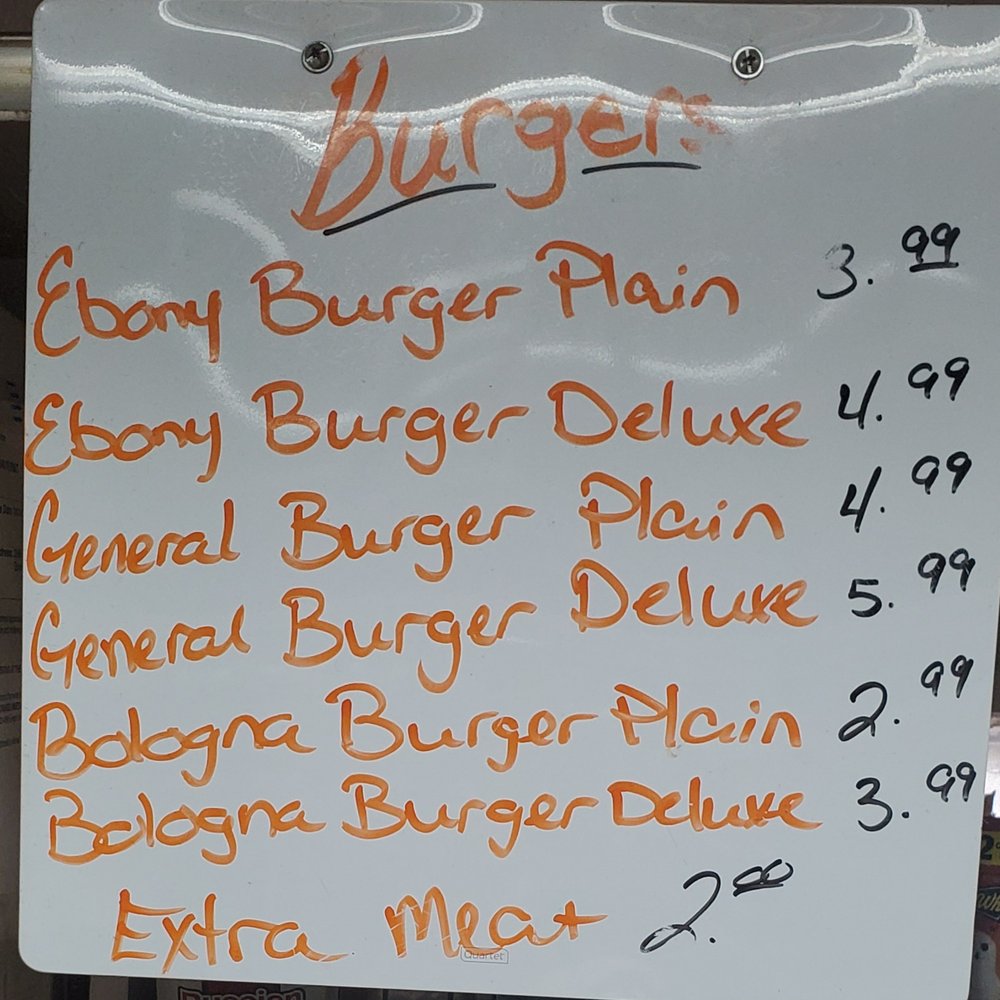 Burgers
Ebony Burger Plain 3.99
Ebony Burger Deluxe 4.99
General Burger Plain 4.99
General Burger Deluxe 5.99
Bologna Burger Plain 2.99
Bologna Burger Deluxe 3.99
Extra Meat 2.00
Quartet
Russian